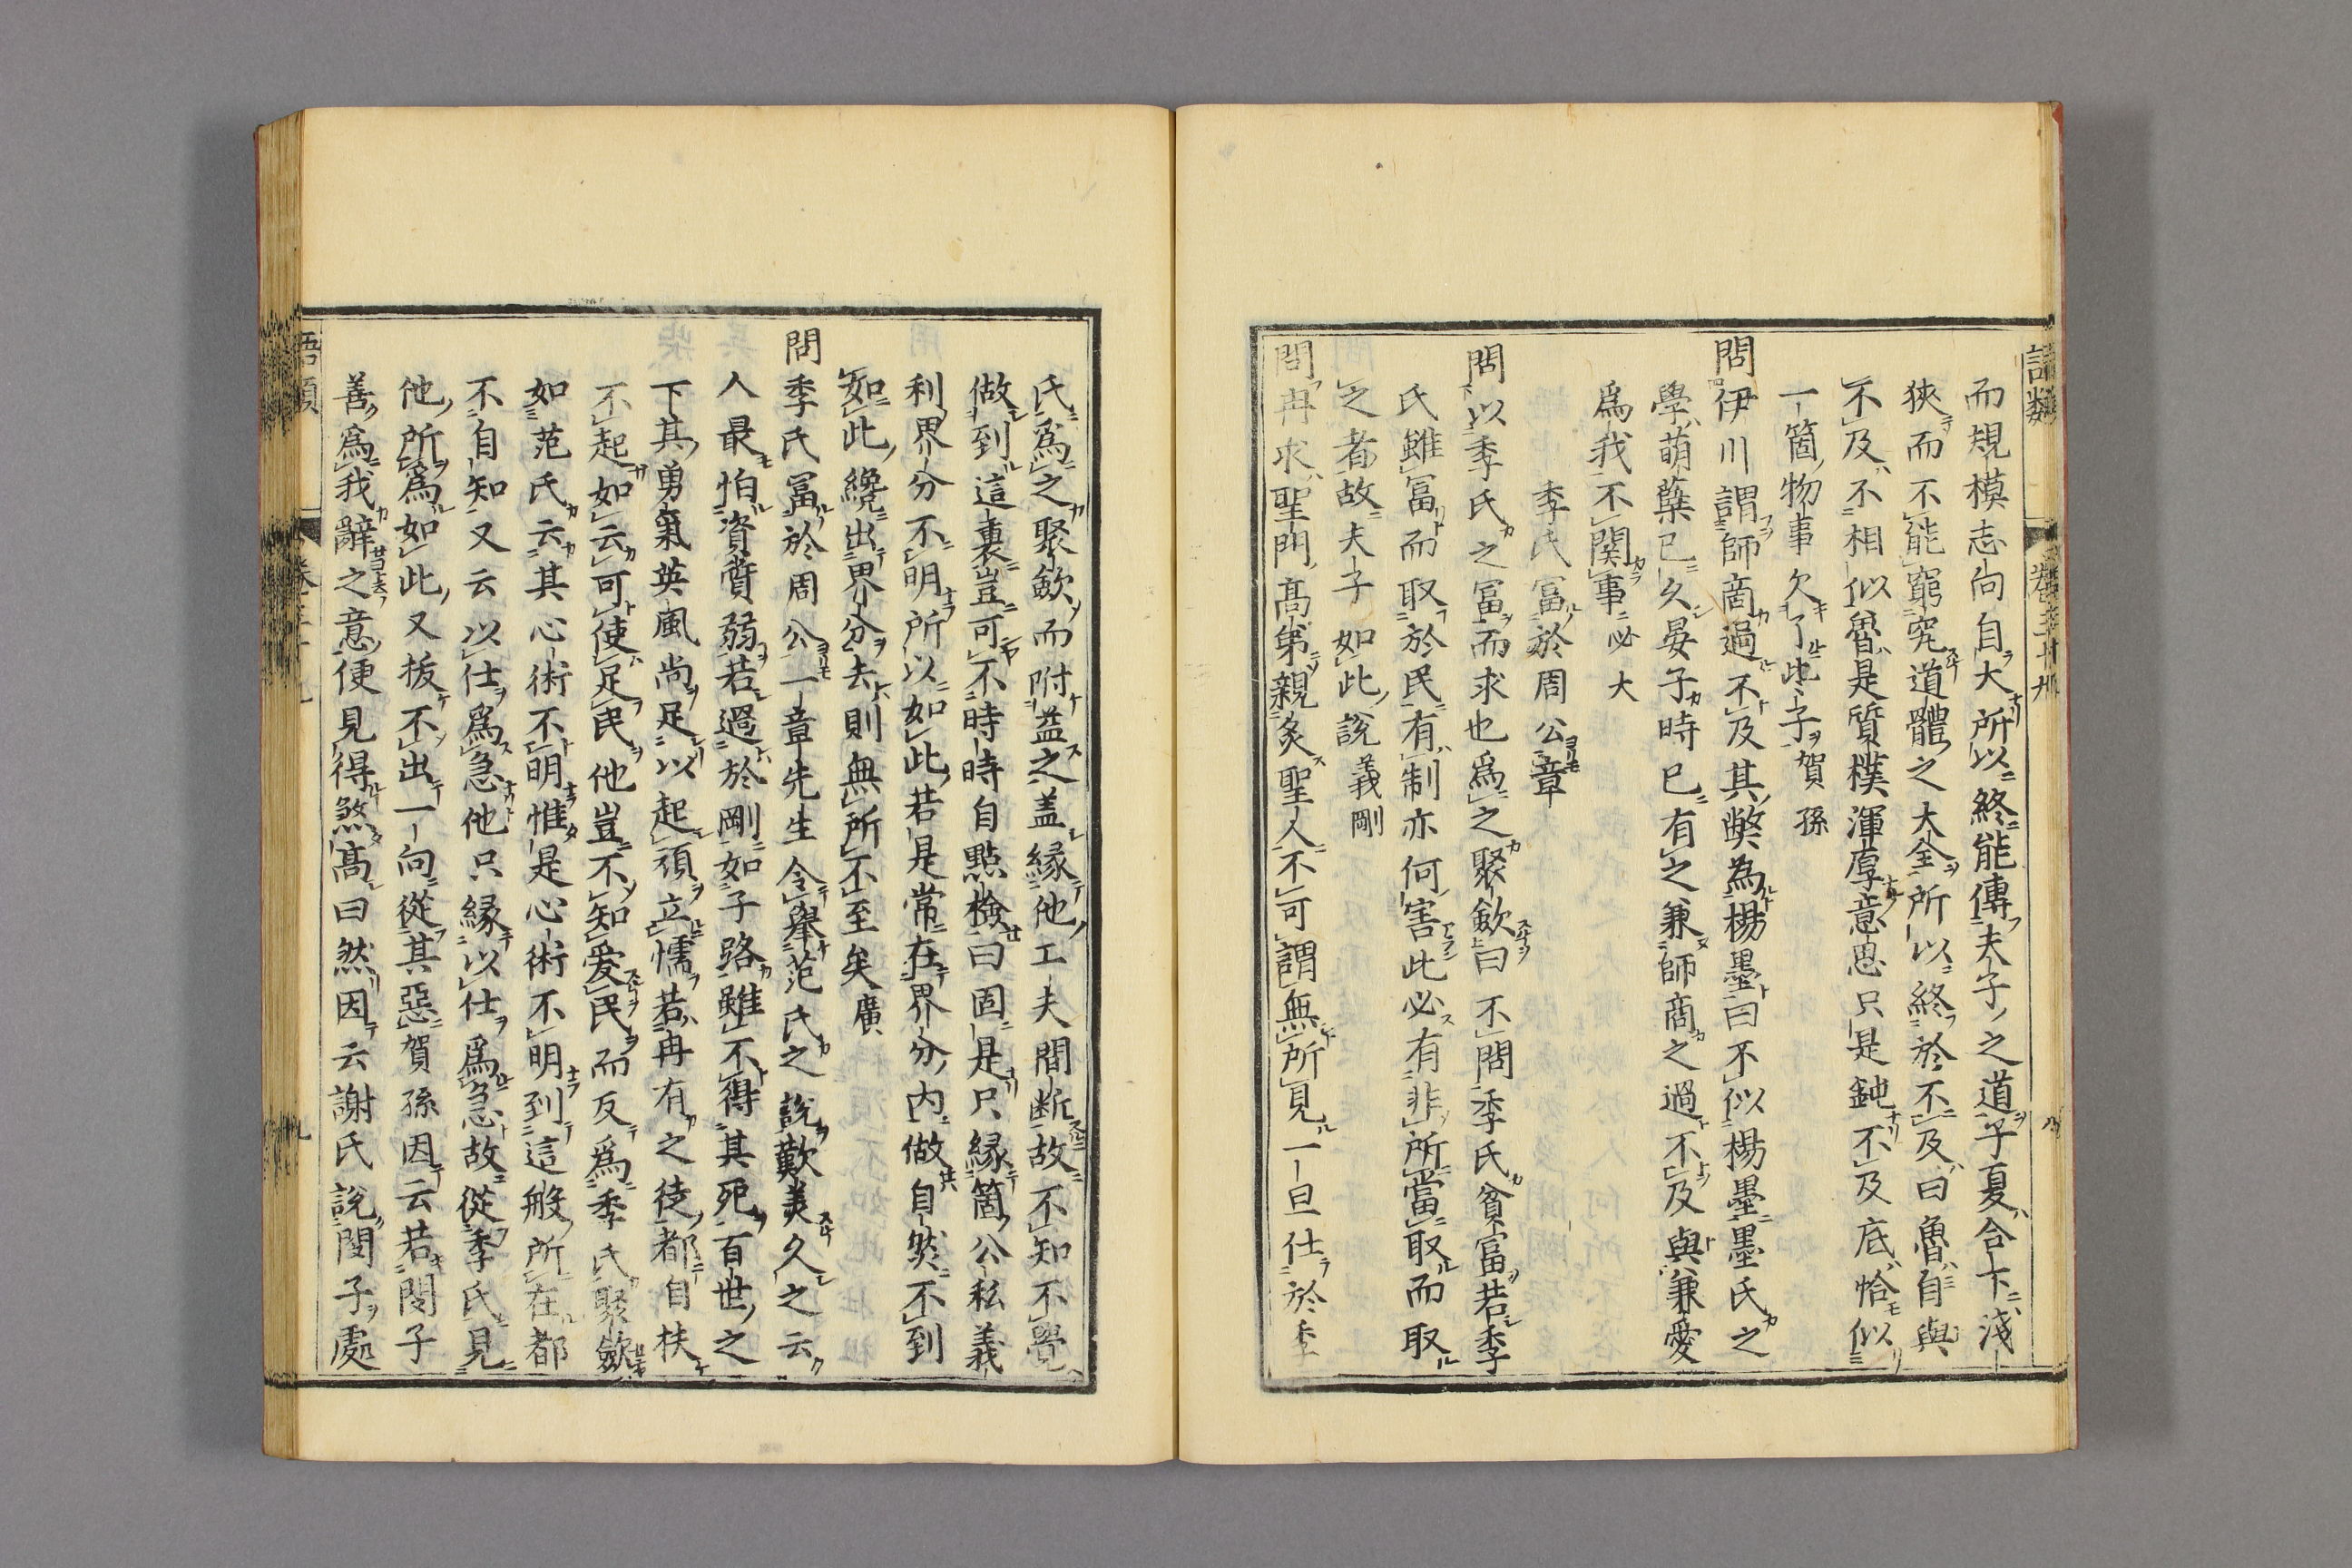 語類 卷三十九 八
而規模志向自大所以終能傳夫子之道子夏合下淺
狹而不能窮究道體之大全所以終於不及曰魯自與
不及不相似魯是質樸渾厚意思只是鈍不及底恰似
一箇物事欠了此子賀孫
問伊川謂師商過不及其弊為楊墨曰不似楊墨墨氏之
學萌蘖已久晏子時已有之兼師商之過不及與兼愛
爲我不關事必大
季氏冨於周公章
問以季氏之冨而求也爲之聚歛曰不問季氏貧富若季
氏雖冨而取於民有制亦何害此必有非所當取而取
之者故夫子如此說義剛
問冉求聖門高弟親炙聖人不可謂無所見一旦仕於季
氏爲之聚歛而附益之盖緣他工夫間断故不知不覺
做到這裏豈可不時時自點檢曰固是只緣箇公私義
利界分不明所以如此若是常在界分內做自然不到
如此纔出界分去則無所不至矣廣
問季氏冨於周公一章先生令舉范氏之說歎美久之云
人最怕資質弱若過於剛如子路雖不得其死百世之
下其勇氣英風尚足以起頑立懦若冉有之徒都自扶
不起如云可使足民他豈不知爱民而反爲季氏聚歛
如范氏云其心術不明惟是心術不明到這般所在都
不自知又云以仕爲急他只緣以仕爲急故從季氏見
他所爲如此又拔不出一向從其惡賀孫因云若閔子
善爲我辭之意便見得煞高曰然因云謝氏說閔子處
語類 卷三十九 九